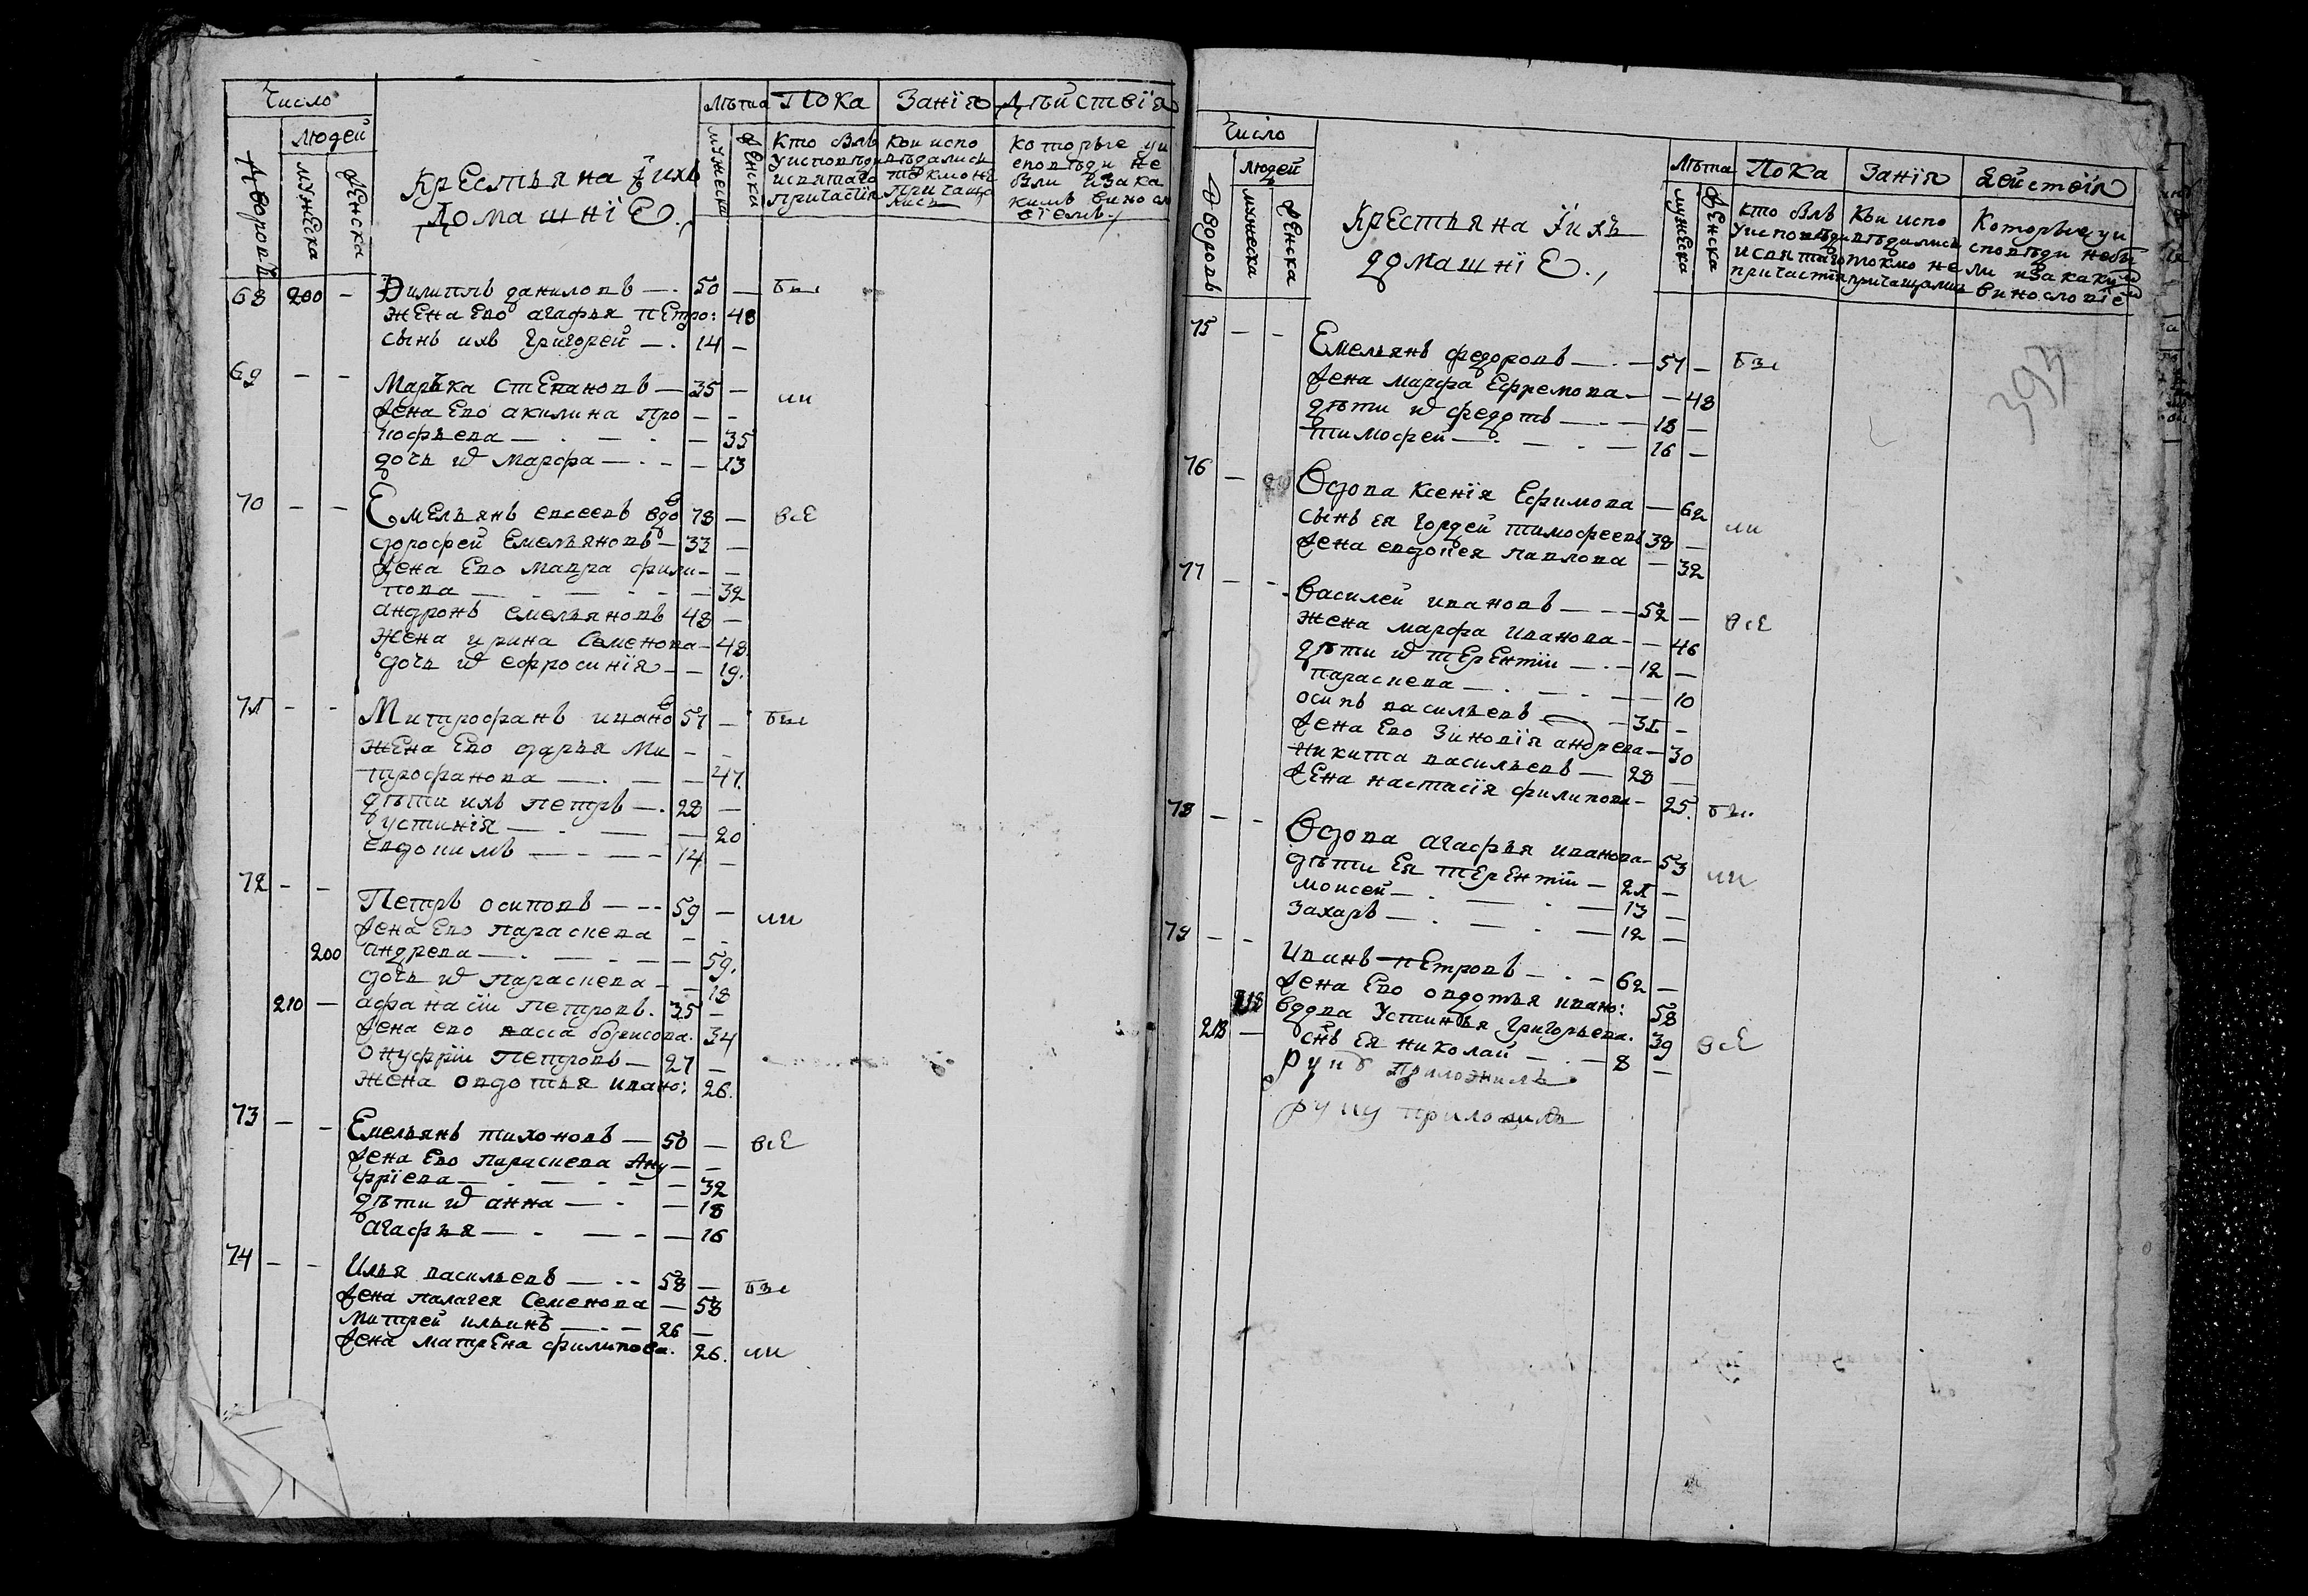 Число
Людей
Дворовъ
мужеска
женска
Крестьяна Їихъ
Домашнїе.
Лѣта
мужеска
женска
Пока
Занїя
Дѣйствїя
Кто былъ
уисповѣди
исвятаго
причастїя
Кои испо
вѣдались
токмо не
причаща
лись
которые уи
споведи не
были изака
кимъ винос
вїемъ
68 200 — Филиппъ даниловъ — 50 — бы
жена Ево агафья петро: 48
сынъ ихъ Григорей — 14 —
69 — — Марька степановъ — 35 — ли
жена Ево акилина про — —
кофьева — — 35
дочь их марфа — — 13
70 — — Емельянъ евсеевъ вдо 78 — все
дорофей Емельяновъ — 33 —
жена Ево мавра фили — —
пова — — 32
андронъ емельяновъ 48 —
жена ирина Семенова — 48
дочь их ефросинїя — — 19.
71 — — Митрофанъ иванов 57 — бы
жена Ево дарья Ми — —
трофанова — — 47.
дѣти ихъ петръ — 28 —
устинїя — — 20
евдокимъ — 14 —
72 — — Петръ осиповъ — 59 — ли
жена Ево параскева — —
200 андрева — — 59.
дочь их параскева — — 18
210 — афанасїи Петровъ. 35 —
жена ево васса борисова. 34
онуфрїи Петровъ — 27 —
жена овдотья ивано: 26.
73 — — Емельянъ тихоновъ — 50 — все
жена Ево параскева Ану — —
фрїева — — 32
дѣти их анна — — 18
агафья — — 16
74 — — Илья васильевъ — 58 — бы
жена палагея Семенова — 58
митрей ильинъ — 26 —
жена матрена филипова. 26. ли
Число
Людей
Дворовъ
мужеска
женска
Крестьяна Їихъ
домашнїе.
Лѣта
мужеска
женска
Пока
Занїя
действїя
кто былъ
уисповѣди
исвятаго
причастїя
Кои испо
вѣдались
токмо не
причащались
Которые уи
споведи небы
ли изакаким
винословїем
393
75 — — Емельянъ федоровъ — 57 — бы
жена марфа Ефремова — — 48
дѣти их федотъ — 18 —
тимофей — 16 —
76 — Вдова Ксенїя Ефимова — 62
сынъ ея гордей тимофеевъ 38 — ли
жена евдокея павлова — 32
77 — — Василей ивановъ — 52 — все
жена марфа иванова — — 46
дѣти их терентїи — 12 —
параскева — — 10
осипъ васильевъ — 31 —
жена Ево Зиновїя андрева — 30
никита васильевъ — 28 —
жена настасїя филипова — 25. бы.
78 — — Вдова агафья иванова — 53
дѣти Ея терентїи — 21 — ли
моисей — 13 —
захаръ — 12 —
79 — — Иванъ петровъ — 62 —
жена Ево овдотья ивано: 58
218 вдова Устинья Григорьева. 39
218 — снъ Ея николай — 8 — все
руку приложилъ
руку приложилъ